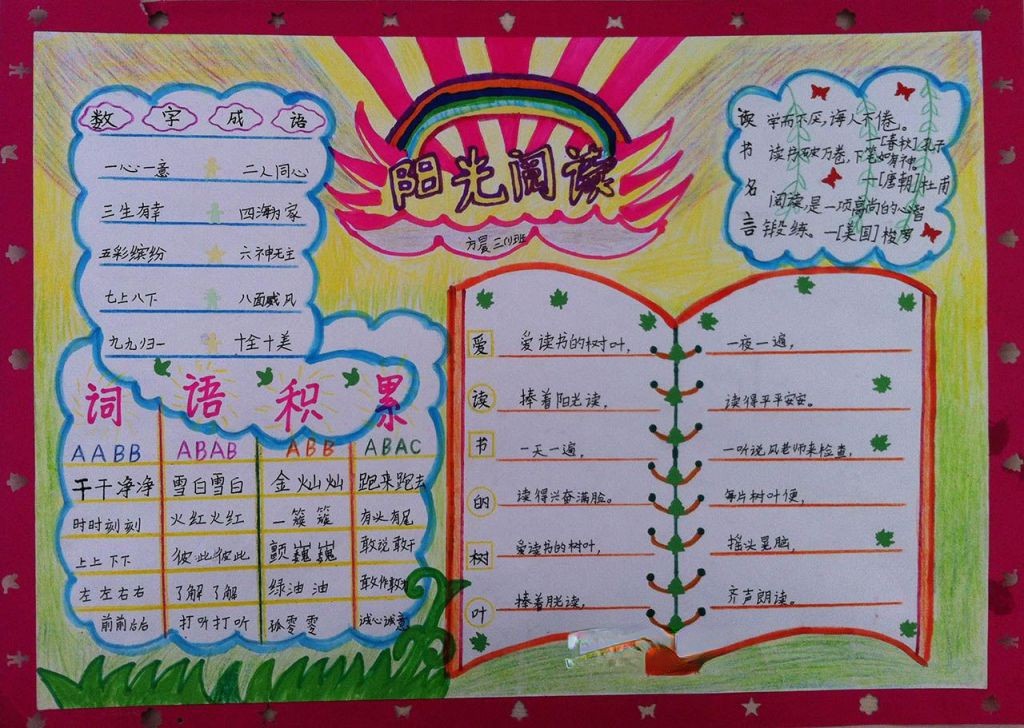 阳光阅读
万晨三(1)班
数字成语
一心一意 二人同心
三生有幸 四海为家
五彩缤纷 六神无主
七上八下 八面威风
九九归一 十全十美
读书名言
学而不厌,诲人不倦。
—[春秋]孔子
读书破万卷,下笔如有神。
—[唐朝]杜甫
阅读是一项高尚的心智
锻练。—[美国]梭罗
词语积累
AABB ABAB ABB ABAC
干干净净 雪白雪白 金灿灿 跑来跑去
时时刻刻 火红火红 一簇簇 有头有尾
上上下下 彼此彼此 颤巍巍 敢说敢干
左左右右 了解了解 绿油油 敢作敢为
前前后后 打听打听 孤零零 诚心诚意
爱读书的树叶
爱读书的树叶,
捧着阳光读,
一天一遍,
读得兴奋满脸。
爱读书的树叶,
捧着月光读,
一夜一遍,
读得平平安安。
一听说风老师来检查,
每片树叶便,
摇头晃脑,
齐声朗读。